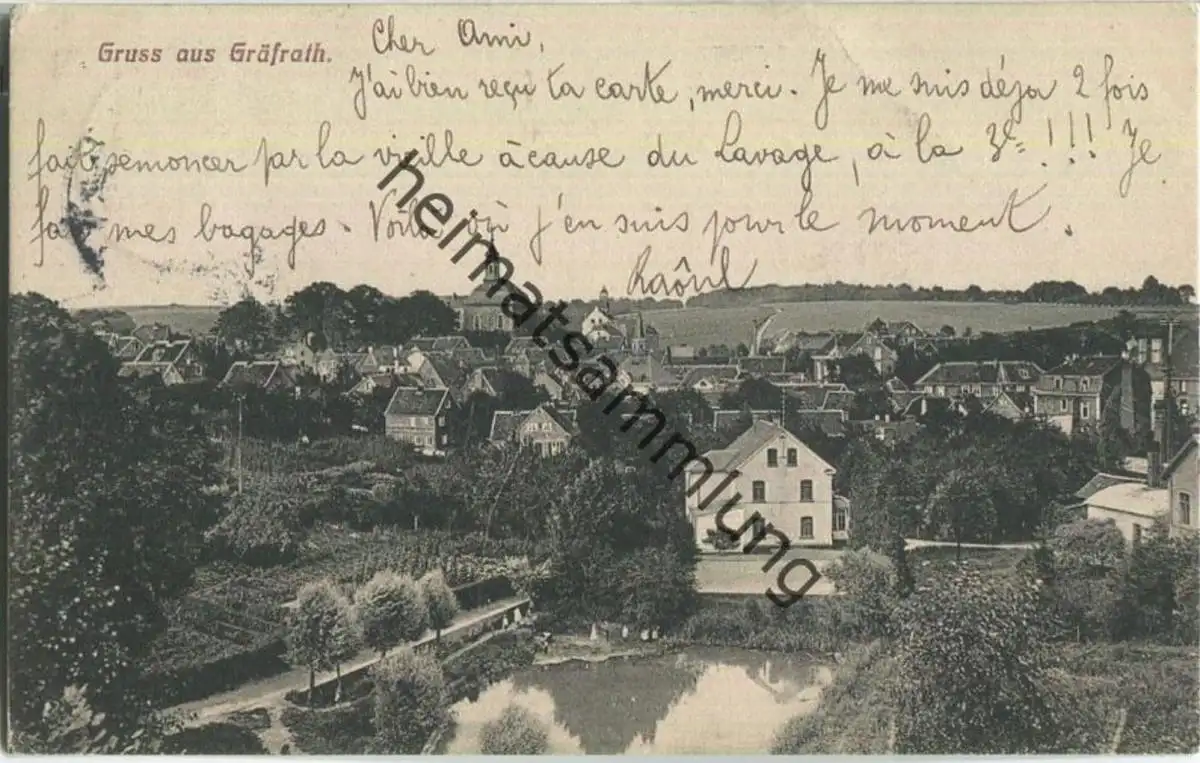 Gruss aus Gräfrath.
Cher Ami,
J'ai bien reçu ta carte, merci. Je me suis déja 2 fois
fait semoncer par la vieille à cause du Lavage, à la 3e !!! Je
fais mes bagages. Voilà où j'en suis pour le moment.
Raôul
heimatsammlung